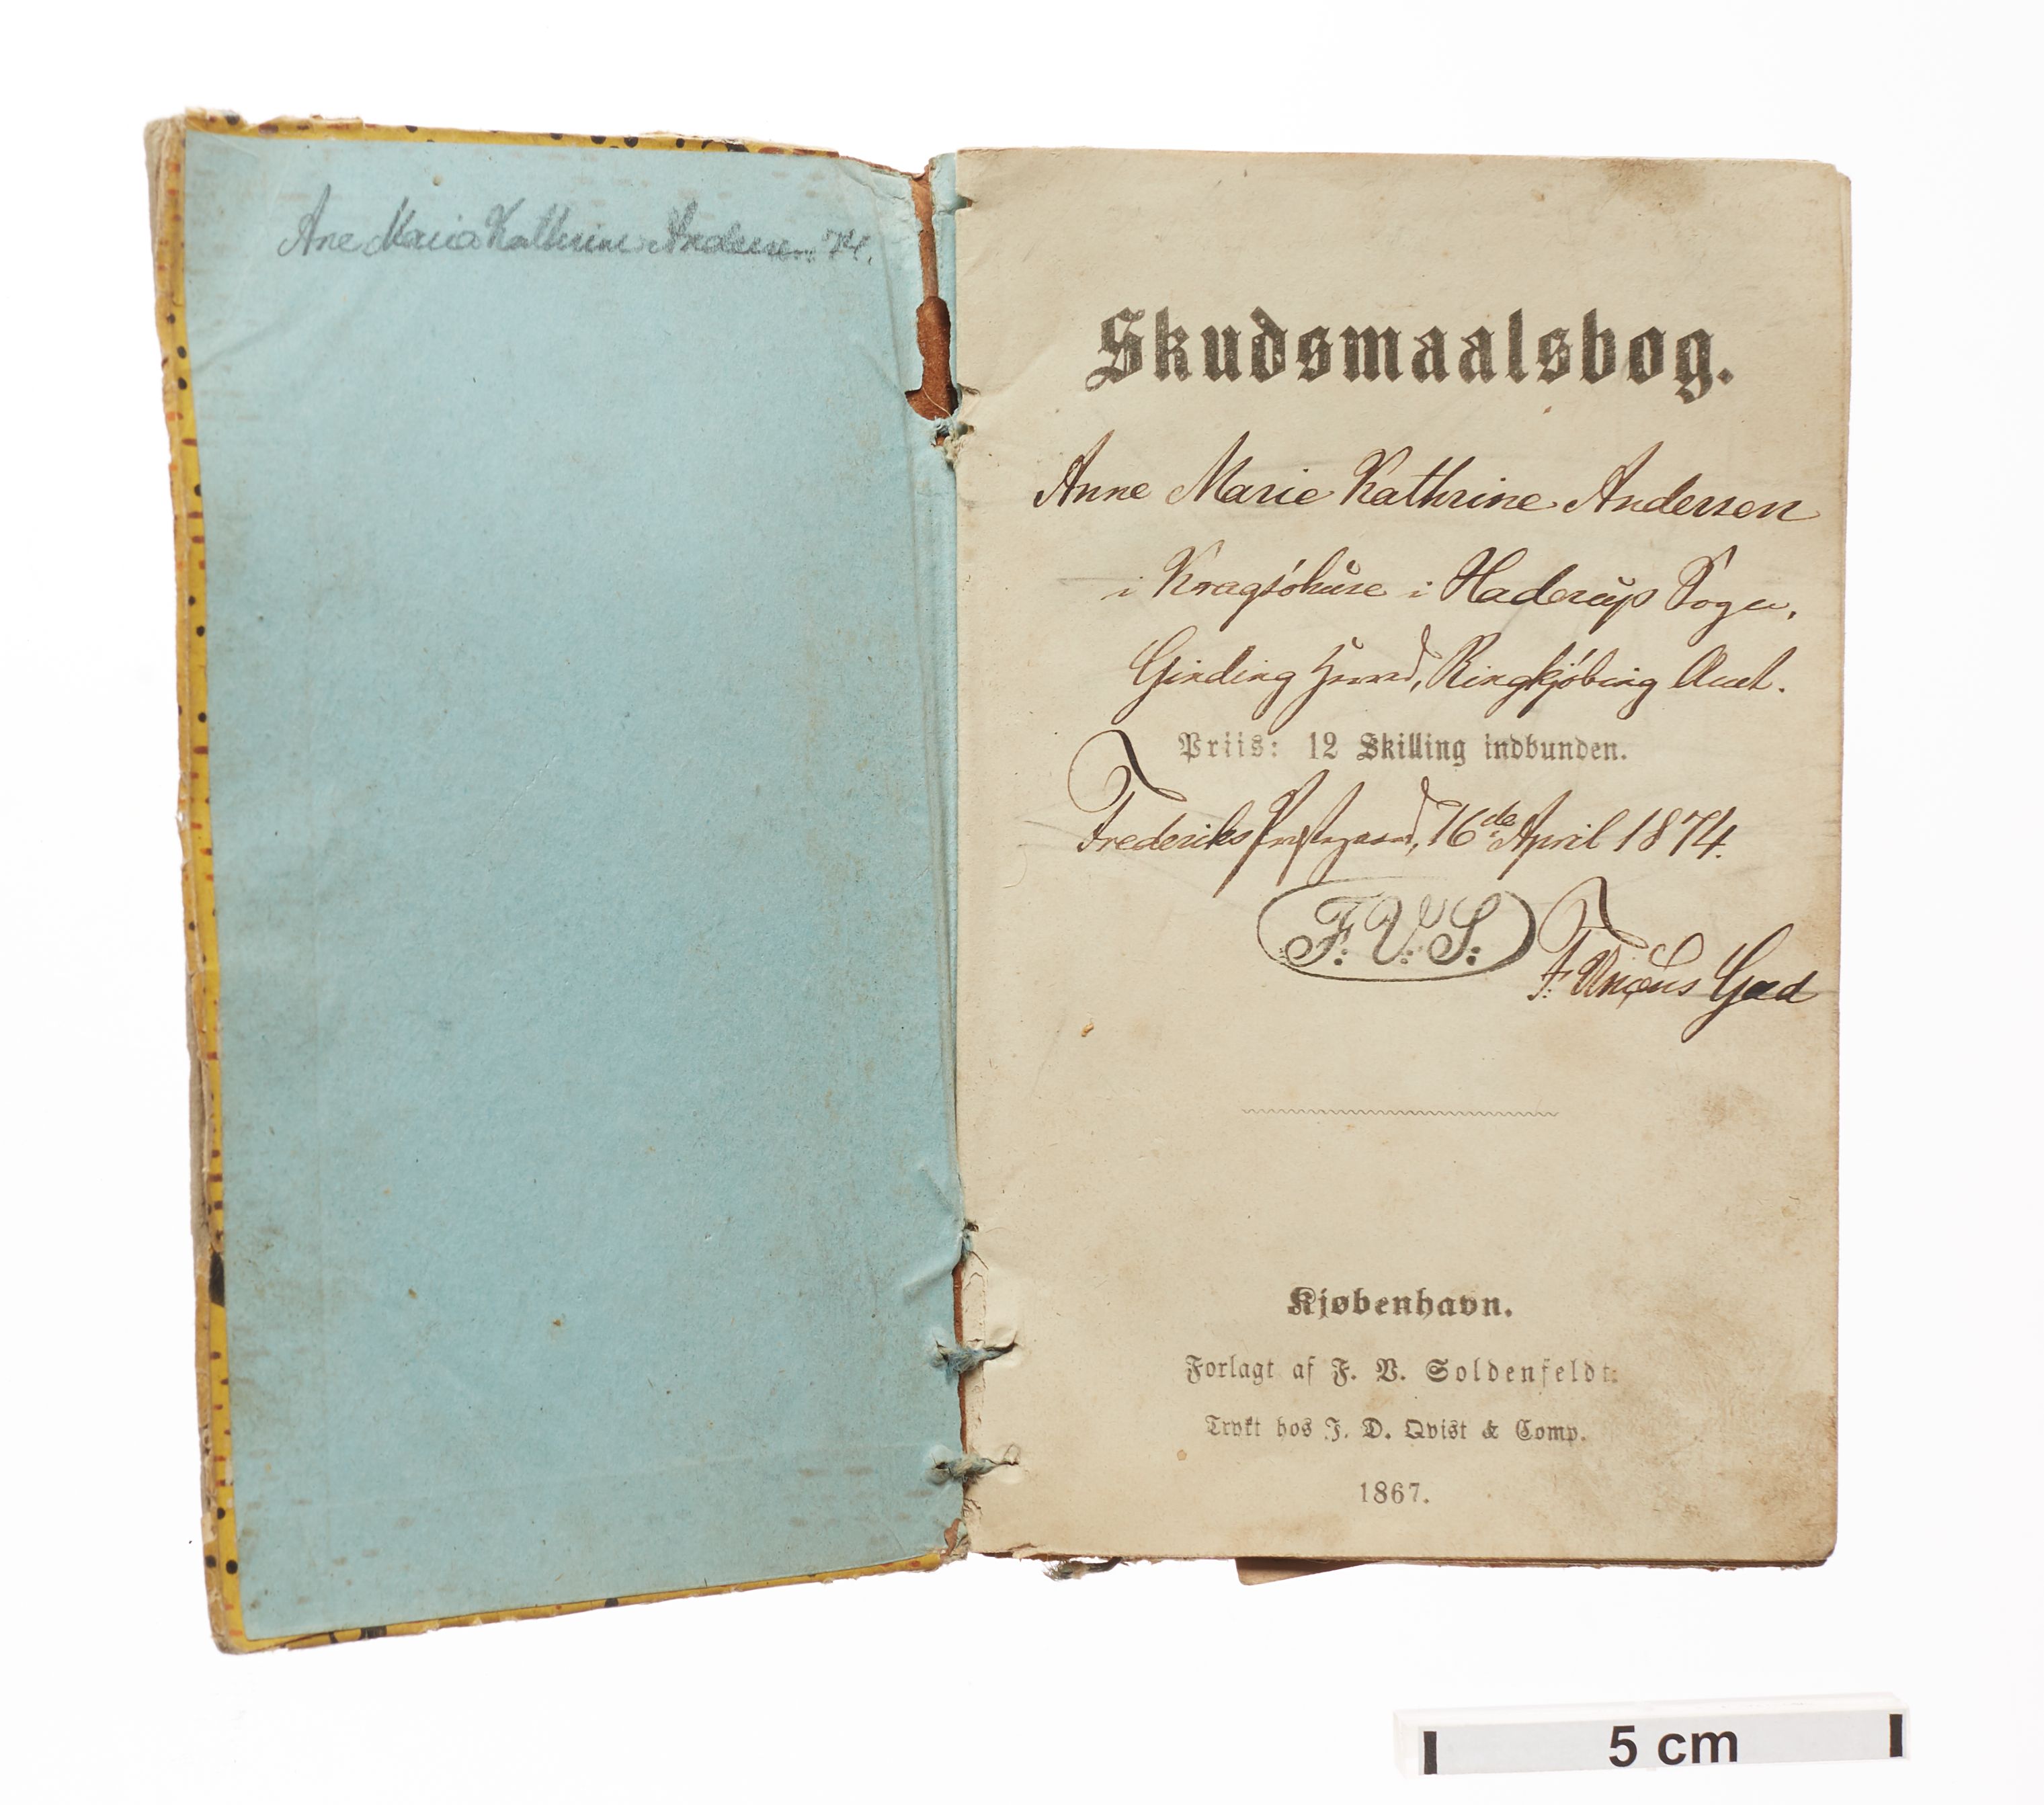 Ane Maria Kathrine Andersen 74.
Skudsmaalsbog.
Anne Marie Kathrine Andersen
i Kragsöhuse i Haderup Sogn,
Ginding Herred, Ringkjöbing Amt.
Priis: 12 Skilling indbunden.
Frederiks Præstegaard, 16de April 1874.
F. V. S.
F. Gad
Kjøbenhavn.
Forlagt af F. V. Soldenfeldt.
Trykt hos J. D. Qvist & Comp.
1867.
5 cm